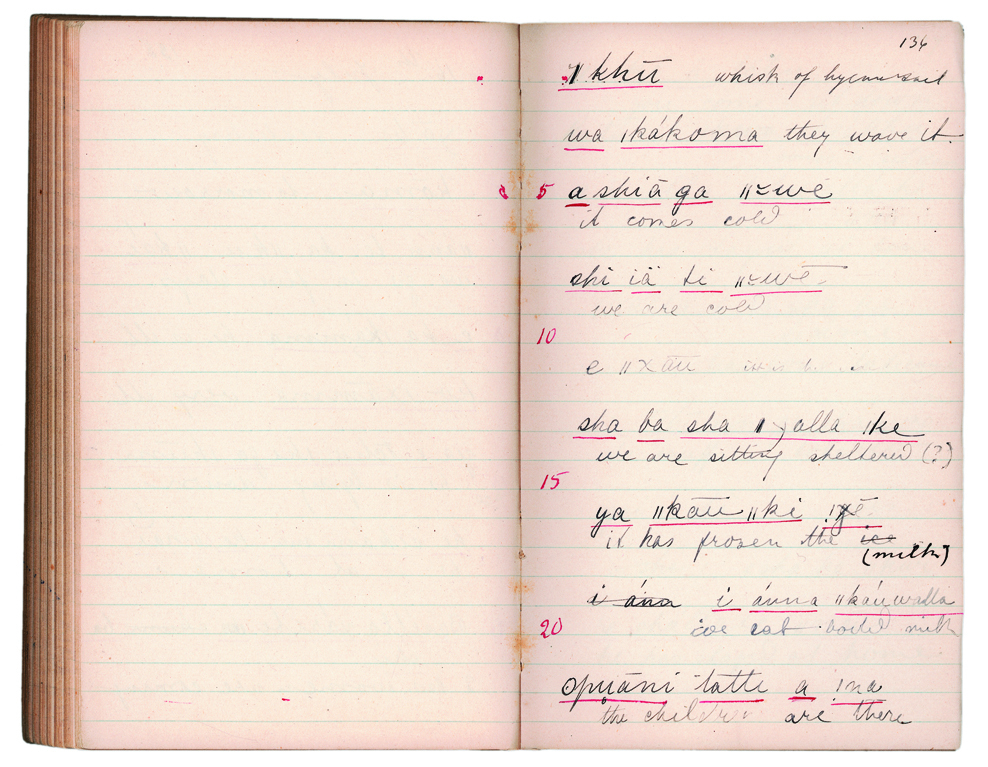 136
ǁkhū whisk of
wa ǀkákoma they wave it
5 a shiā ga ǁ≍wē
it comes cold
shi iä ti ǁ≍wē
we are cold
10
e ǁxāū
sha ba sha ǀyalla ǀke
we are sitting sheltered (?)
15
ya ǁkāū ǁki
it has frozen the ice
(milk)
i ána i ánna ǁkáuwalla
20
we eat boiled milk
opuāni tatti a ǀna
the children are there